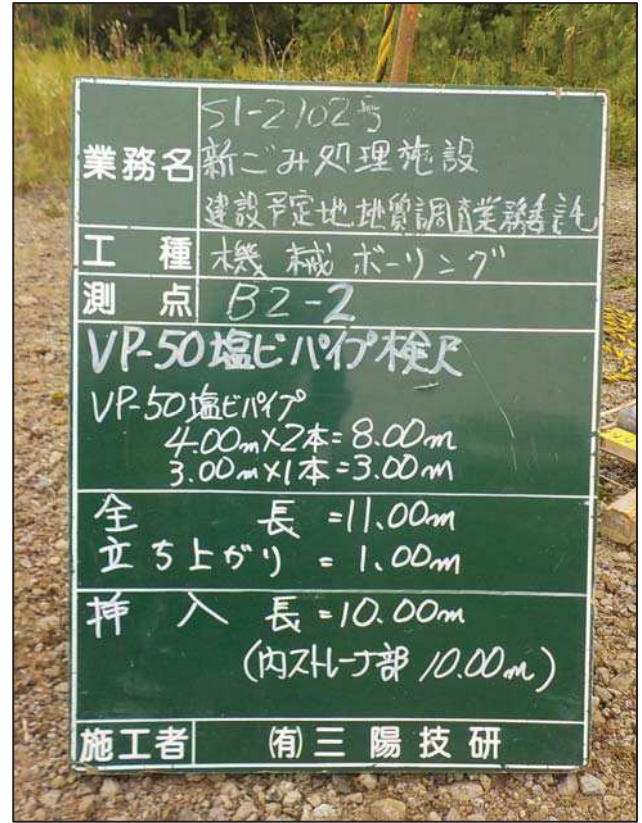 S1-2102号
業務名 新ごみ処理施設
建設予定地地質調査業務委託
工種 機械ボーリング
測点 B2-2
VP-50塩ビパイプ検尺
VP-50塩ビパイプ
4.00m×2本=8.00m
3.00m×1本=3.00m
全長=11.00m
立ち上がり=1.00m
挿入長=10.00m
(内ストレーナ部 10.00m)
施工者 (有)三陽技研